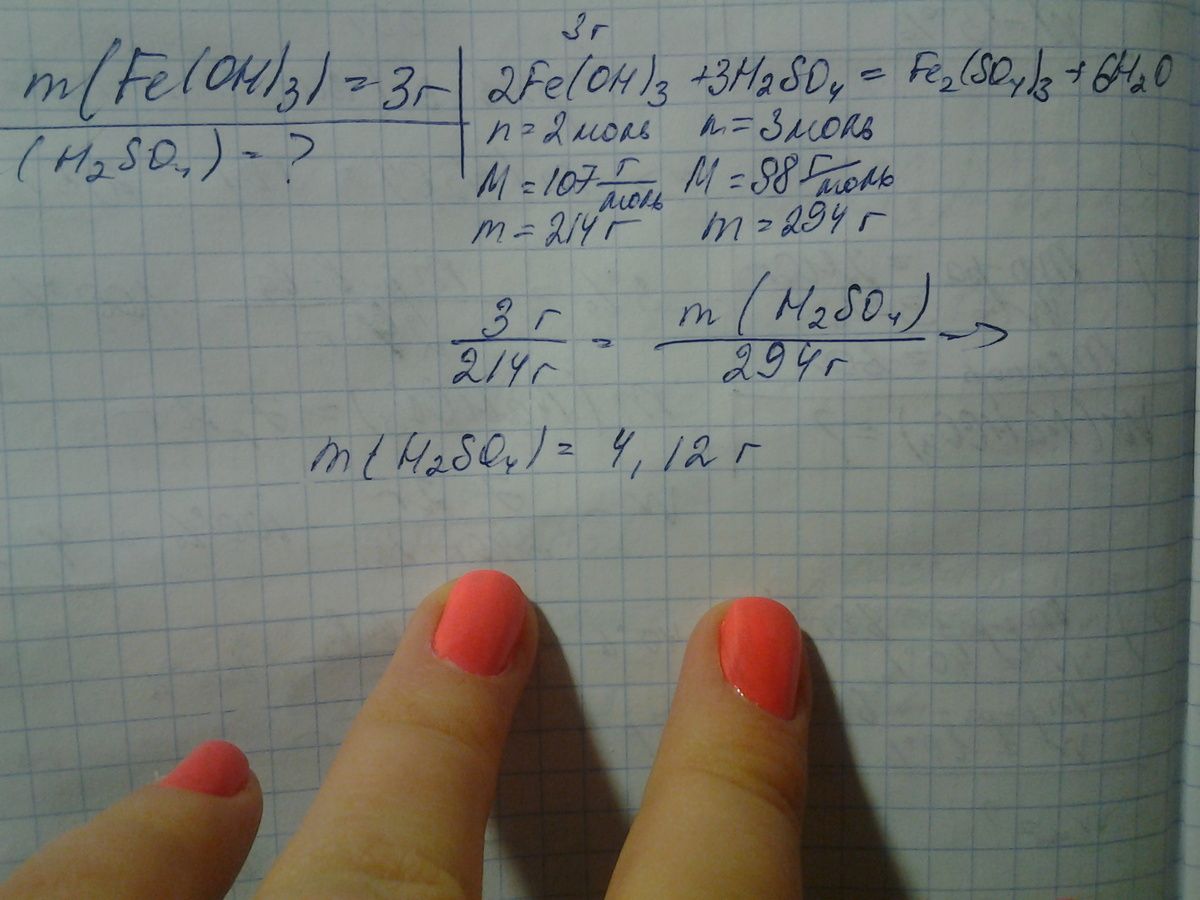 3г
m(Fe(OH)3)=3г | 2Fe(OH)3 +3H2SO4 = Fe2(SO4)3 + 6H2O
(H2SO4) = ? n=2моль m=3моль
M=107 г/моль M=98 г/моль
m=214г m=294г
3г/214г = m(H2SO4)/294г →
m(H2SO4)= 4,12г